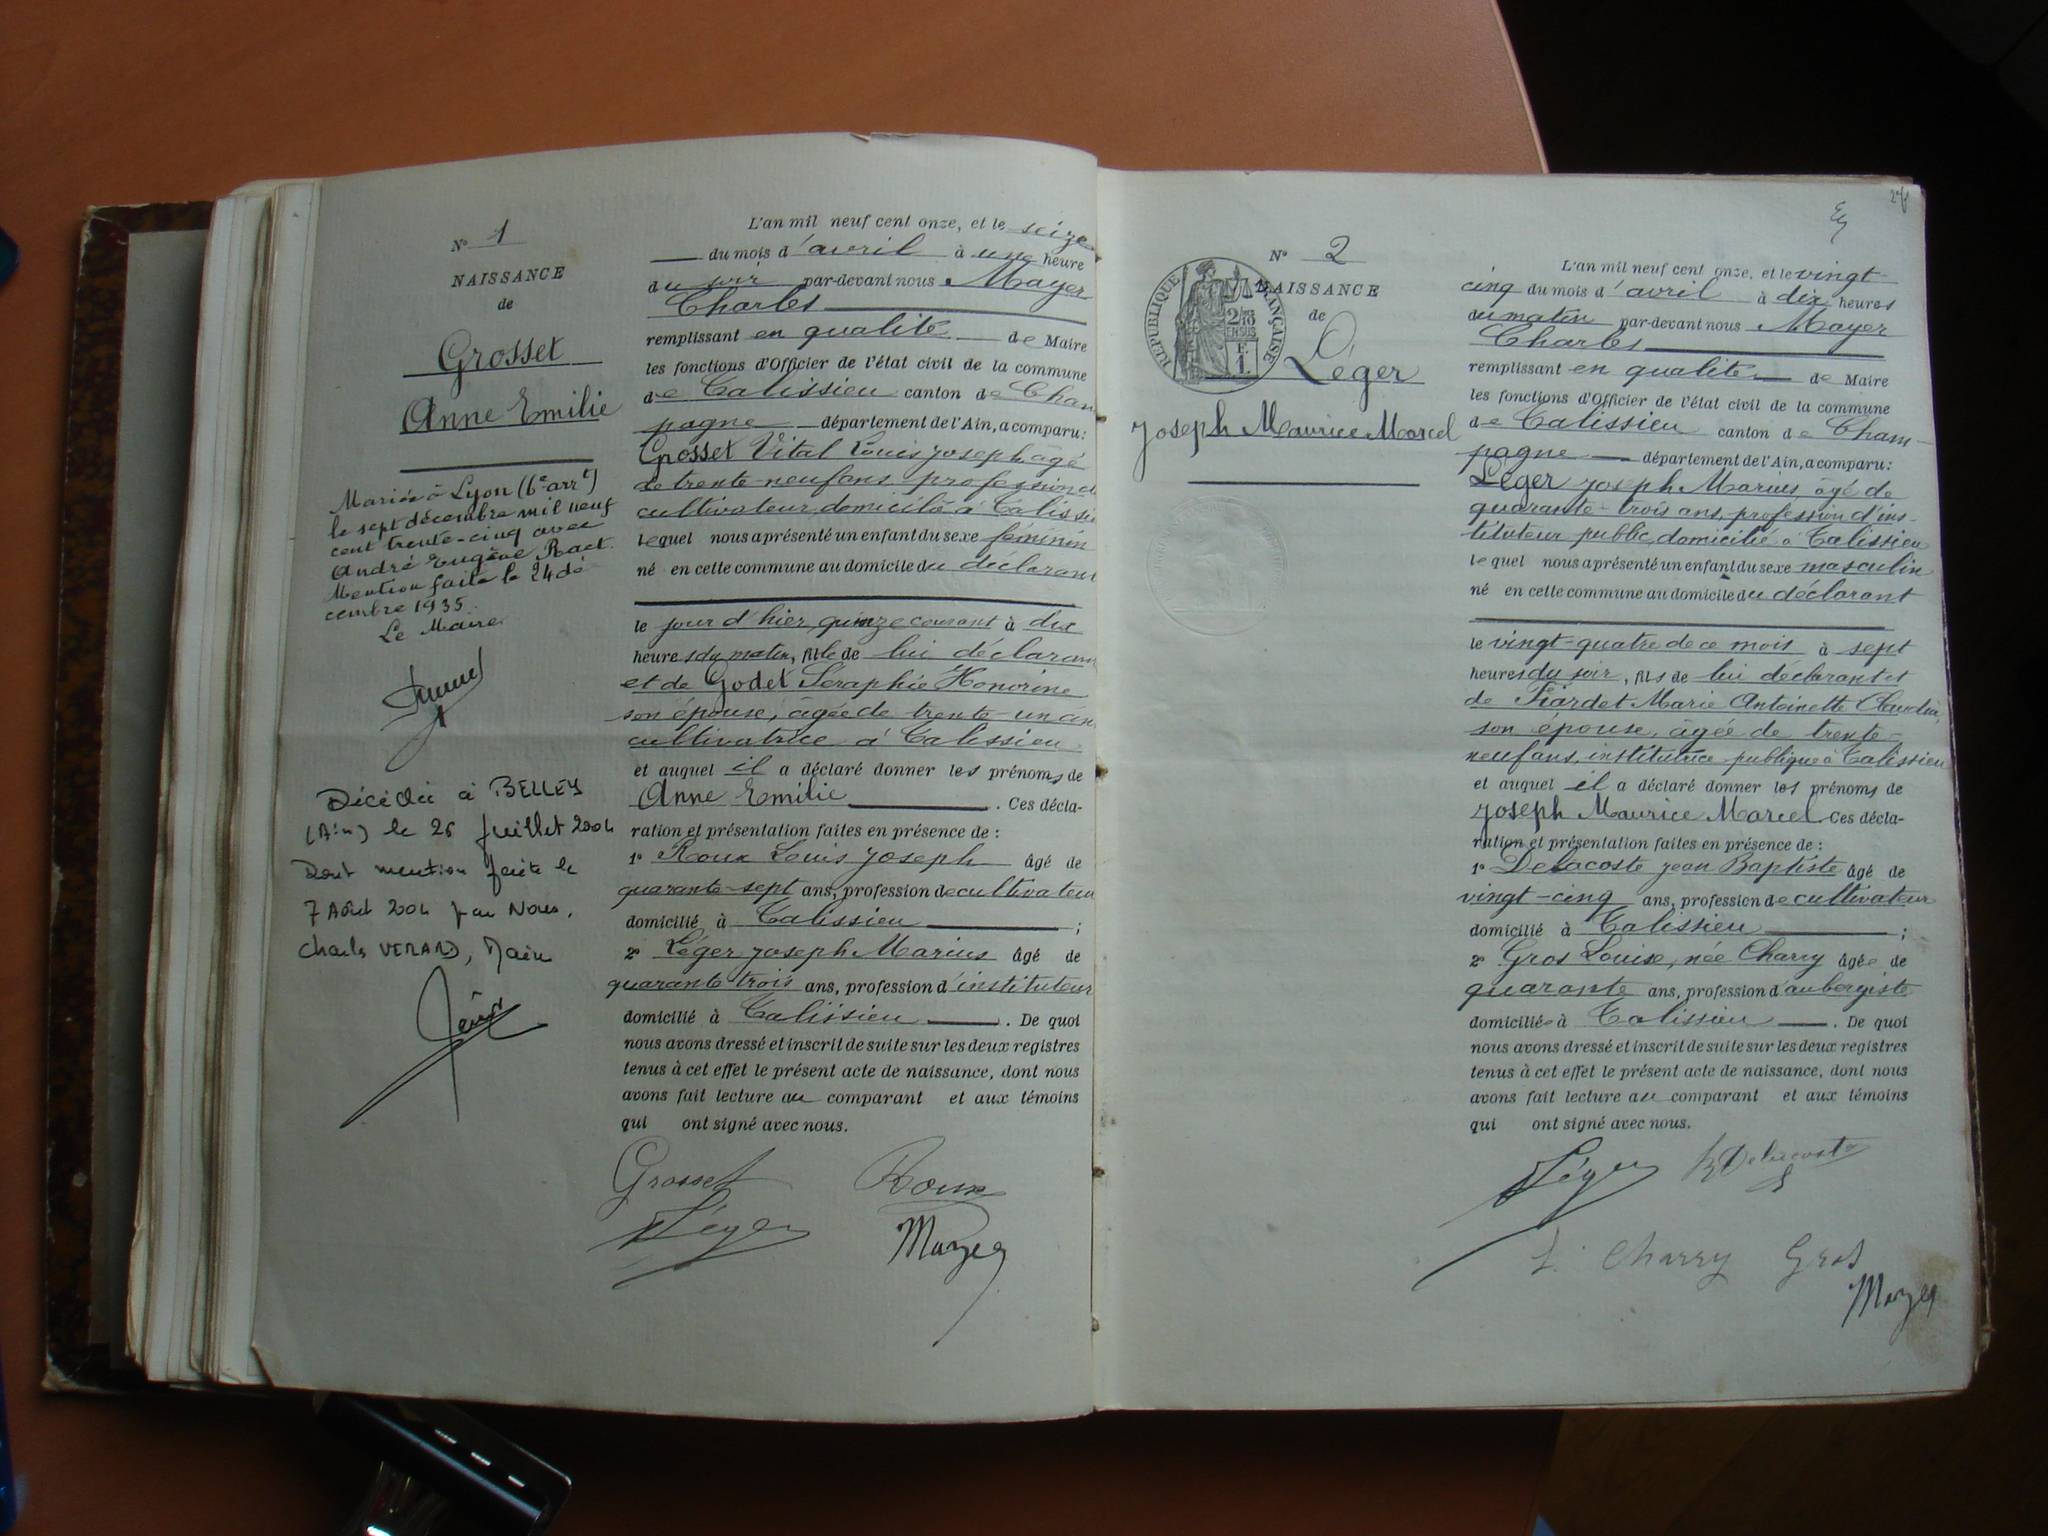 N° 1
NAISSANCE
de
Grosset
Anne Emilie
Mariée à Lyon (6e arrt)
le sept décembre mil neuf
cent trente-cinq avec
André Eugène Ract.
Mention faite le 24 dé
cembre 1935.
Le Maire
Décédée à BELLEY
(Ain) le 26 Juillet 2004
Dont mention faite le
7 Août 2004 par Nous,
Charles VERARD, Maire
L'an mil neuf cent onze, et le seize
du mois d'avril à une heure
du soir par-devant nous Mayer
Charles
remplissant en qualité de Maire
les fonctions d'Officier de l'état civil de la commune
de Talissieu canton de Cham
pagne département de l'Ain, a comparu:
Grosset Vital Louis Joseph âgé
de trente-neuf ans, profession de
cultivateur domicilié à Talissieu
lequel nous a présenté un enfant du sexe féminin
né en cette commune au domicile du déclarant
le jour d'hier, quinze courant à dix
heures du matin, fille de lui déclarant
et de Godet Séraphie Honorine
son épouse, âgée de trente-un an
cultivatrice à Talissieu
et auquel il a déclaré donner les prénoms de
Anne Emilie . Ces décla-
ration et présentation faites en présence de :
1° Roux Louis Joseph âgé de
quarante-sept ans, profession de cultivateur
domicilié à Talissieu ;
2° Léger Joseph Marius âgé de
quarante trois ans, profession d'instituteur
domicilié à Talissieu . De quoi
nous avons dressé et inscrit de suite sur les deux registres
tenus à cet effet le présent acte de naissance, dont nous
avons fait lecture au comparant et aux témoins
qui ont signé avec nous.
Grosset Roux
Léger Mayer
N° 2
NAISSANCE
de
RÉPUBLIQUE FRANÇAISE
2/10
EN SUS
1 F.
Léger
Joseph Maurice Marcel
L'an mil neuf cent onze, et le vingt-
cinq du mois d'avril à dix heures
du matin par-devant nous Mayer
Charles
remplissant en qualité de Maire
les fonctions d'Officier de l'état civil de la commune
de Talissieu canton de Cham-
pagne département de l'Ain, a comparu:
Léger Joseph Marius, âgé de
quarante-trois ans, profession d'ins-
tituteur public, domicilié à Talissieu
lequel nous a présenté un enfant du sexe masculin
né en cette commune au domicile du déclarant
le vingt-quatre de ce mois à sept
heures du soir, fils de lui déclarant et
de Fiardet Marie Antoinette Claudia,
son épouse, âgée de trente-
neuf ans, institutrice publique à Talissieu
et auquel il a déclaré donner les prénoms de
Joseph Maurice Marcel. Ces décla-
ration et présentation faites en présence de :
1° Delacoste Jean Baptiste âgé de
vingt-cinq ans, profession de cultivateur
domicilié à Talissieu ;
2° Gros Louise, née Charry âgée de
quarante ans, profession d'aubergiste
domiciliée à Talissieu . De quoi
nous avons dressé et inscrit de suite sur les deux registres
tenus à cet effet le présent acte de naissance, dont nous
avons fait lecture au comparant et aux témoins
qui ont signé avec nous.
Léger Delacoste
L. Charry Gros
Mayer